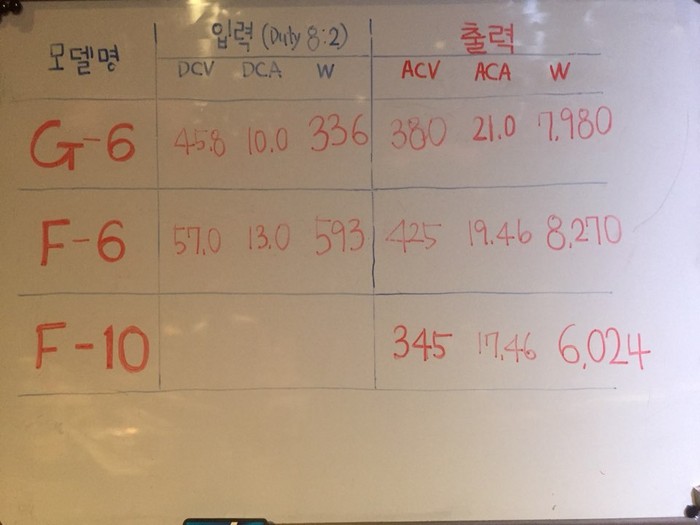 모델명 입력 (Duty 8:2) 출력
DCV DCA W ACV ACA W
G-6 45.8 10.0 336 380 21.0 7,980
F-6 57.0 13.0 593 425 19.46 8,270
F-10 345 17.46 6,024